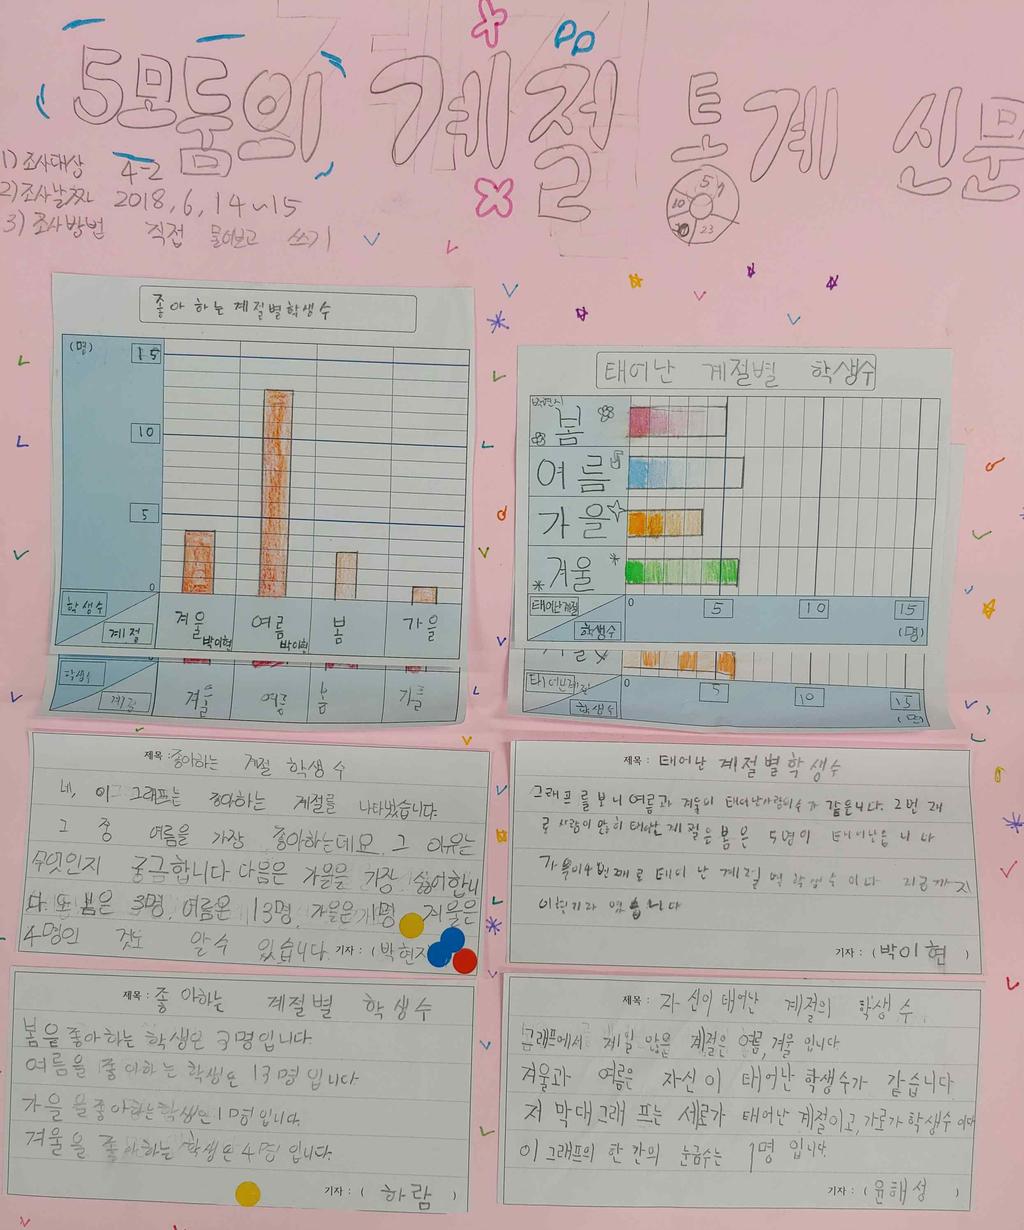 5모둠의 계절 통계 신문
1) 조사대상 4-2
2) 조사날짜 2018, 6, 14~15
3) 조사방법 직접 물어보고 쓰기
5
10
23
좋아하는 계절별 학생 수
(명)
15
10
5
0
학생수
계절
겨울 박이현
여름 박이현
봄
가을
학생수
계절
겨울
여름
봄
가을
태어난 계절별 학생수
박현지
봄
여름
가을
겨울
태어난계절
학생수
0
5
10
15
(명)
가을
태어난계절
학생수
0
5
10
15
(명)
제목 : 좋아하는 계절 학생 수
네, 이 그래프는 좋아하는 계절를 나타냈습니다.
그 중 여름을 가장 좋아하는데요. 그 이유는
무엇인지 궁금합니다 다음은 가을을 가장 싫어합니
다. 또 봄은 3명, 여름은 13명, 가을은 1명 겨울은
4명인 것도 알 수 있습니다. 기자 : (박현지
제목 : 태어난 계절별학생수
그래프를 보니 여름과 겨울이 태어난사람이수가 같습니다. 2번 째
로 사람이 많히 태어난 계절은 봄은 5명이 태어났습니다
가을이 4번째로 태어난 계절별 학생수이다 지금까지
이현기자 였습니다
기자 : (박이현)
제목 : 좋아하는 계절별 학생수
봄을 좋아하는 학생은 3명입니다.
여름을 좋아하는 학생은 13명 입니다
가을을 좋아하는학생은 1명입니다.
겨울을 좋아하는 학생은 4명 입니다.
기자 : ( 하람 )
제목 : 자신이 태어난 계절의 학생 수
그래프에서 제일 많은 계절은 여름, 겨울 입니다
겨울과 여름은 자신이 태어난 학생수가 같습니다
저 막대그래프는 세로가 태어난 계절이고, 가로가 학생수 이다
이 그래프의 한 칸의 눈금수는 1명 입니다.
기자 : (윤해성 )